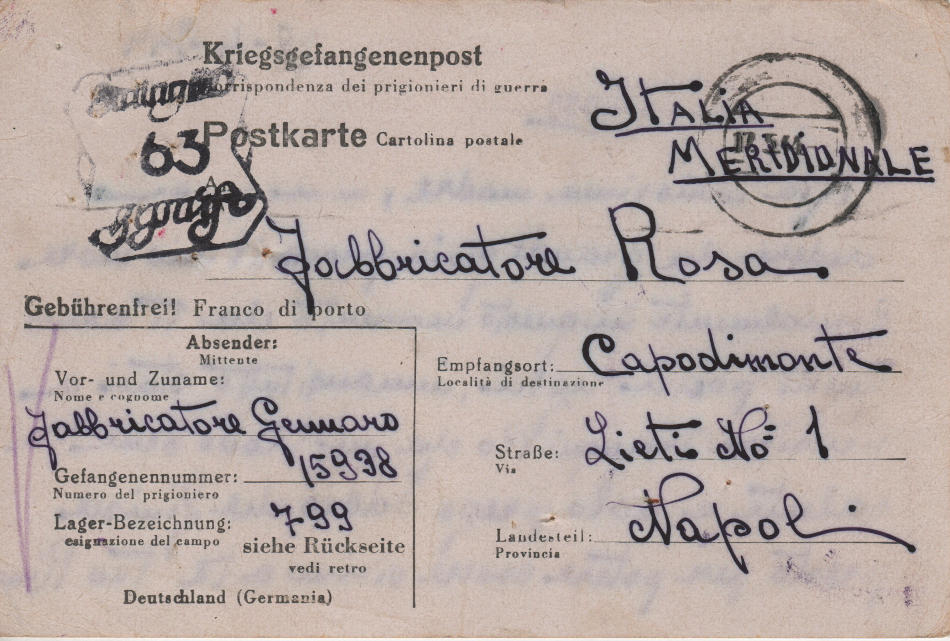 Kriegsgefangenenpost
Corrispondenza dei prigionieri di guerra
Postkarte Cartolina postale
Geprüft
63
ITALIA
MERIDIONALE
Fabbricatore Rosa
Gebührenfrei! Franco di porto
Absender:
Mittente
Vor- und Zuname:
Nome e cognome
Fabbricatore Gennaro
Gefangenennummer: 15938
Numero del prigioniero
Lager-Bezeichnung: 799
esignazione del campo
siehe Rückseite
vedi retro
Deutschland (Germania)
Empfangsort: Capodimonte
Località di destinazione
Straße: Lieti No 1
Via
Landesteil: Napoli
Provincia